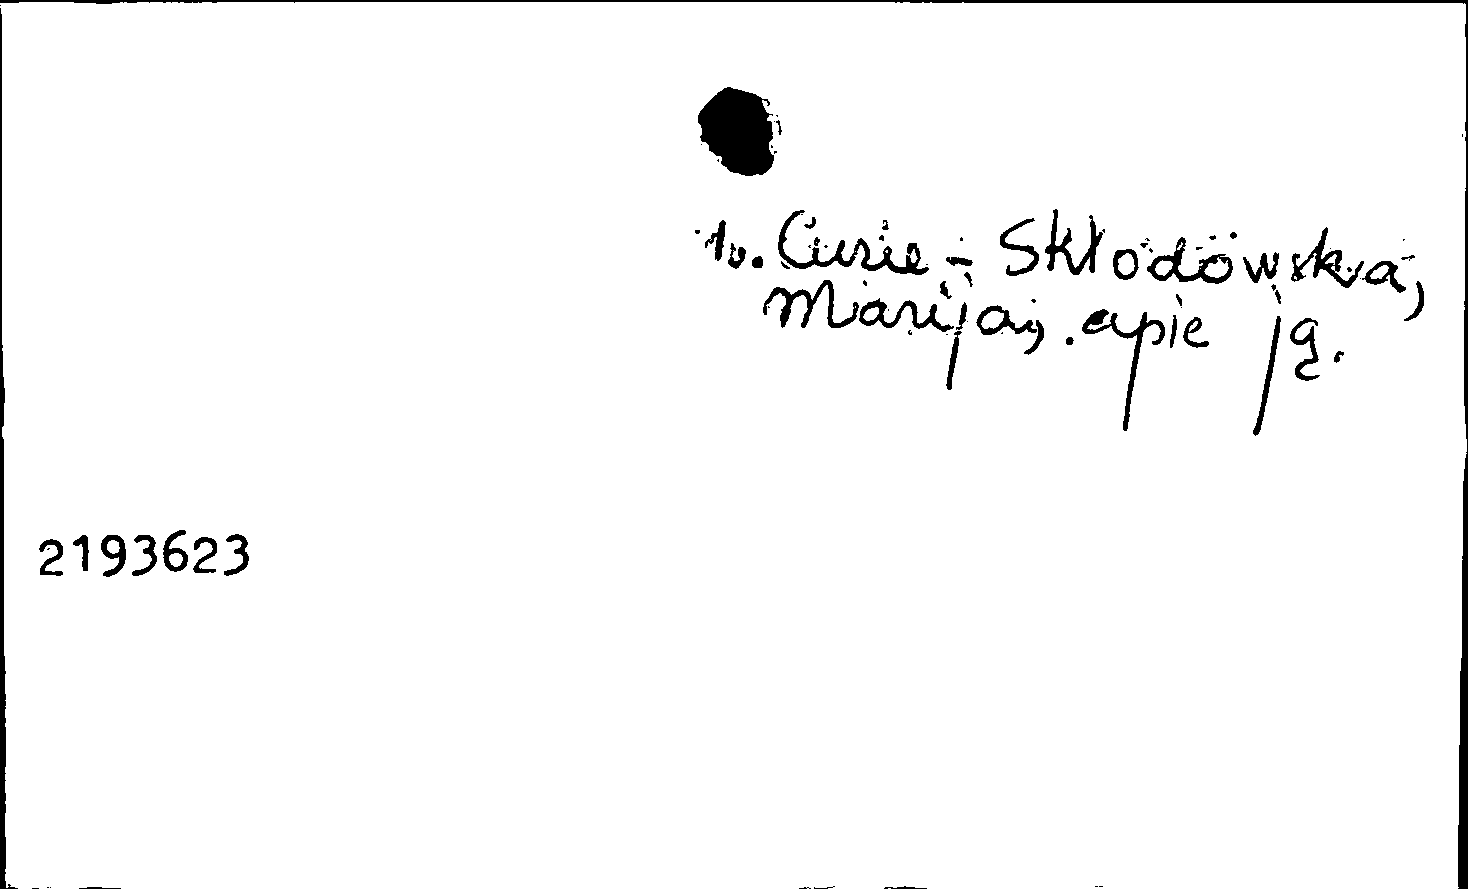 1. Curie - Skłodowska,
Marija, apie ją.
2193623